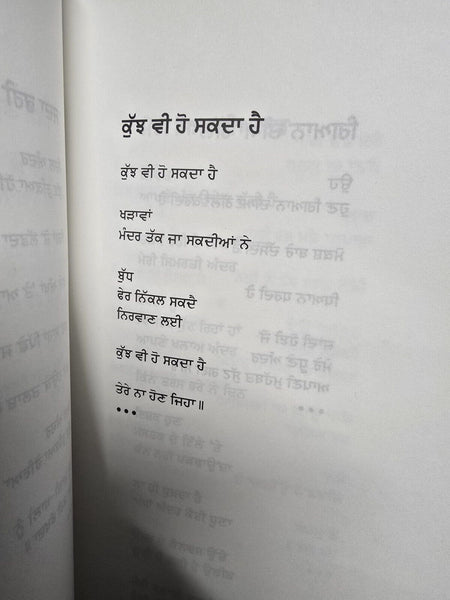 ਕੁੱਝ ਵੀ ਹੋ ਸਕਦਾ ਹੈ
ਕੁੱਝ ਵੀ ਹੋ ਸਕਦਾ ਹੈ
ਖੜਾਵਾਂ
ਮੰਦਰ ਤੱਕ ਜਾ ਸਕਦੀਆਂ ਨੇ
ਬੁੱਧ
ਫੇਰ ਨਿੱਕਲ ਸਕਦੈ
ਨਿਰਵਾਣ ਲਈ
ਕੁੱਝ ਵੀ ਹੋ ਸਕਦਾ ਹੈ
ਤੇਰੇ ਨਾ ਹੋਣ ਜਿਹਾ॥
•••